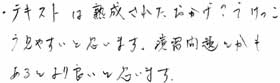 ・テキストは熟成されたおかげ?でけっこ
う見やすいと思います。演習問題とかも
あるとより良いと思います。